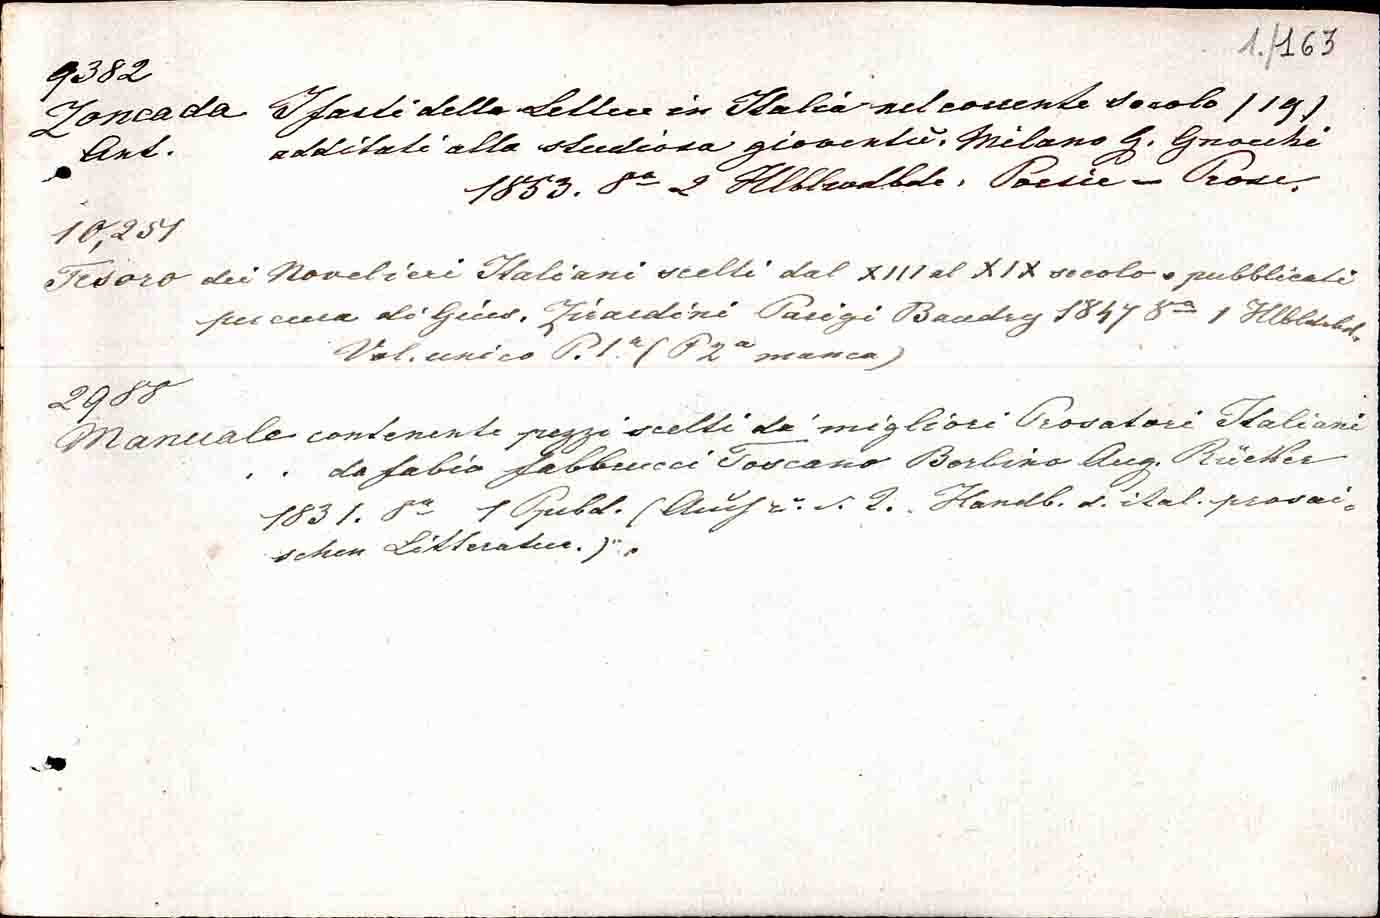 1./163
9382
Zoncada I fasti delle Lettere in Italia nel corrente secolo (19)
Ant. additati alla studiosa gioventù. Milano G. Gnocchi
1853. 8° 2 Poesie – Prose.
10,251
Tesoro dei Novelieri Italiani scelti dal XIII al XIX secolo e pubblicati
per cura di Gius. Zirardini Parigi Baudry 1847 8° 1 Hlbldrbd.
Vol. unico P. 1.a (P 2a manca)
2988
Manuale contenente pezzi scelti da' migliori Prosatori Italiani
da Fabio Fabbrucci Toscano Berlino Aug. Rücker
1831. 8° 1 Ppbd. (Auch u. d. T. Handb. d. ital. prosai-
schen Litteratur.)